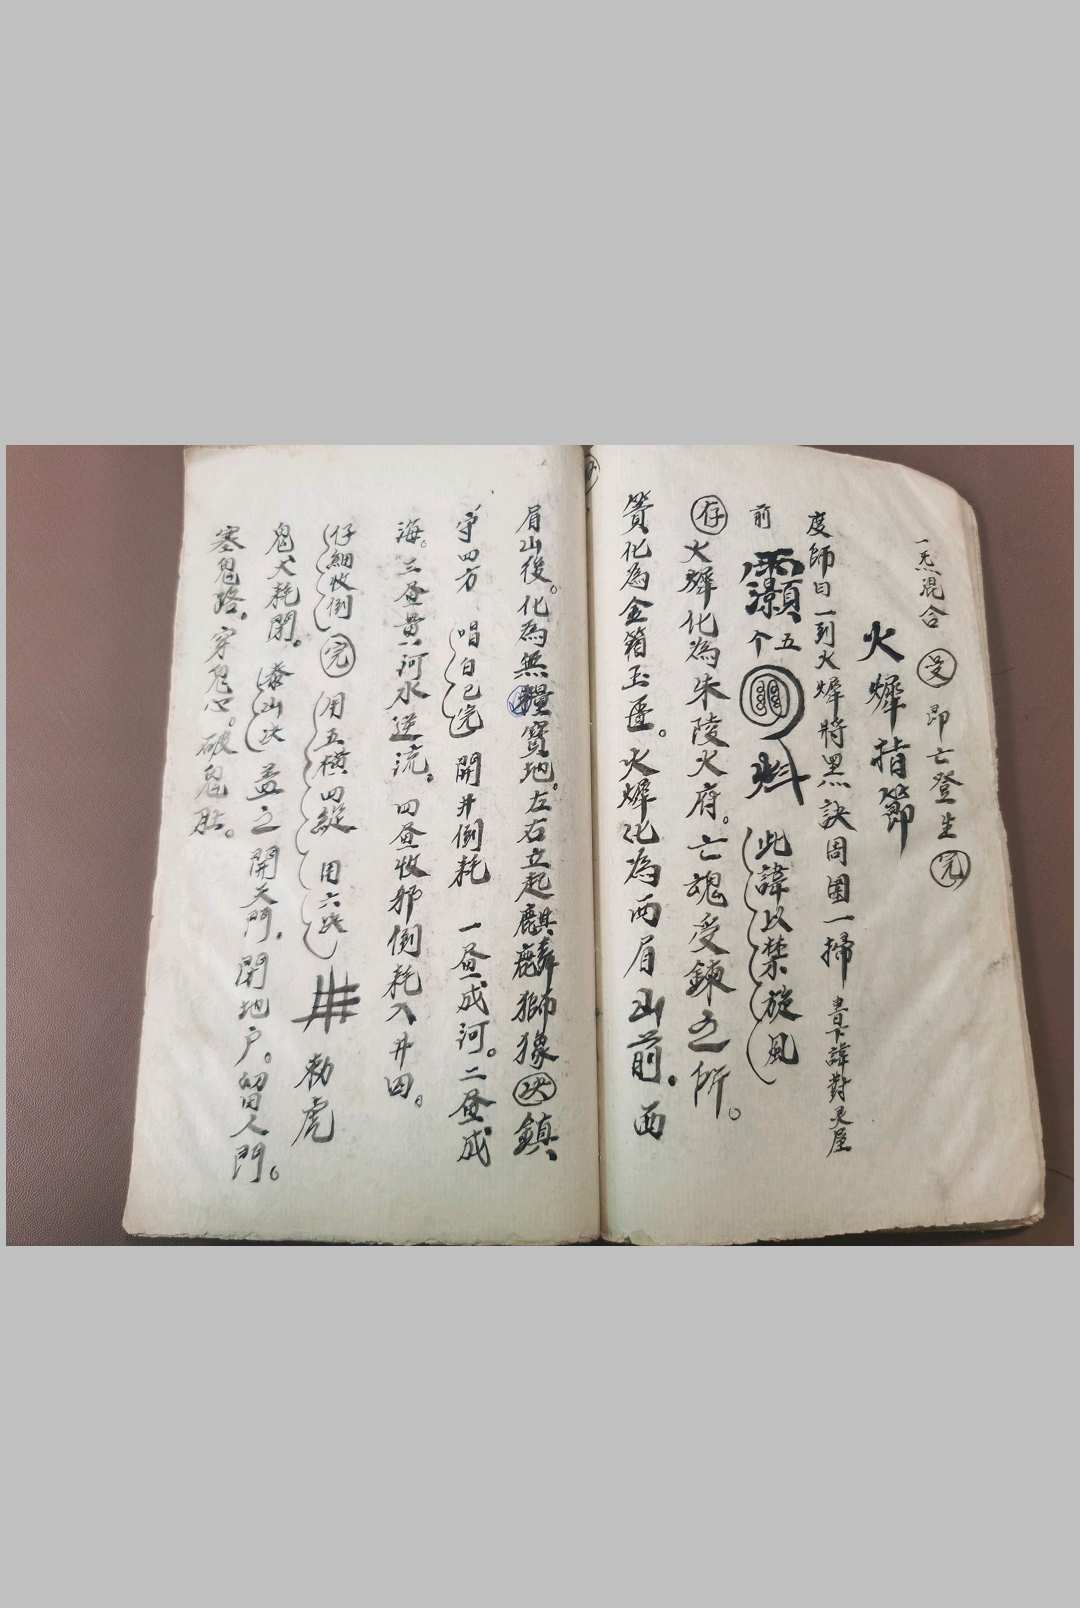 一炁混合 受 即亡登生 完
火墀指節
度師曰一到火墀將黑訣周圍一掃 書下諱對灵屋
前 五个 此諱以禁旋風
存 火墀化為朱陵火府。亡魂受鍊之所。
簣化為金箱玉匣。火墀化為西眉山前。西
眉山後。化為無糧寶地。左右立起麒麟獅像 决 鎮
守四方 唱白已完 開井倒耗 一昼成河。二昼成
海。三昼黄河水逆流。四昼收邪倒耗入井囚。
仔細收倒 完 用五橫四縱 用六决 井 勅虎
鬼犬耗閉。泰山决 盖之 開天門。閉地户。留人門。
塞鬼路。穿鬼心。破鬼肚。